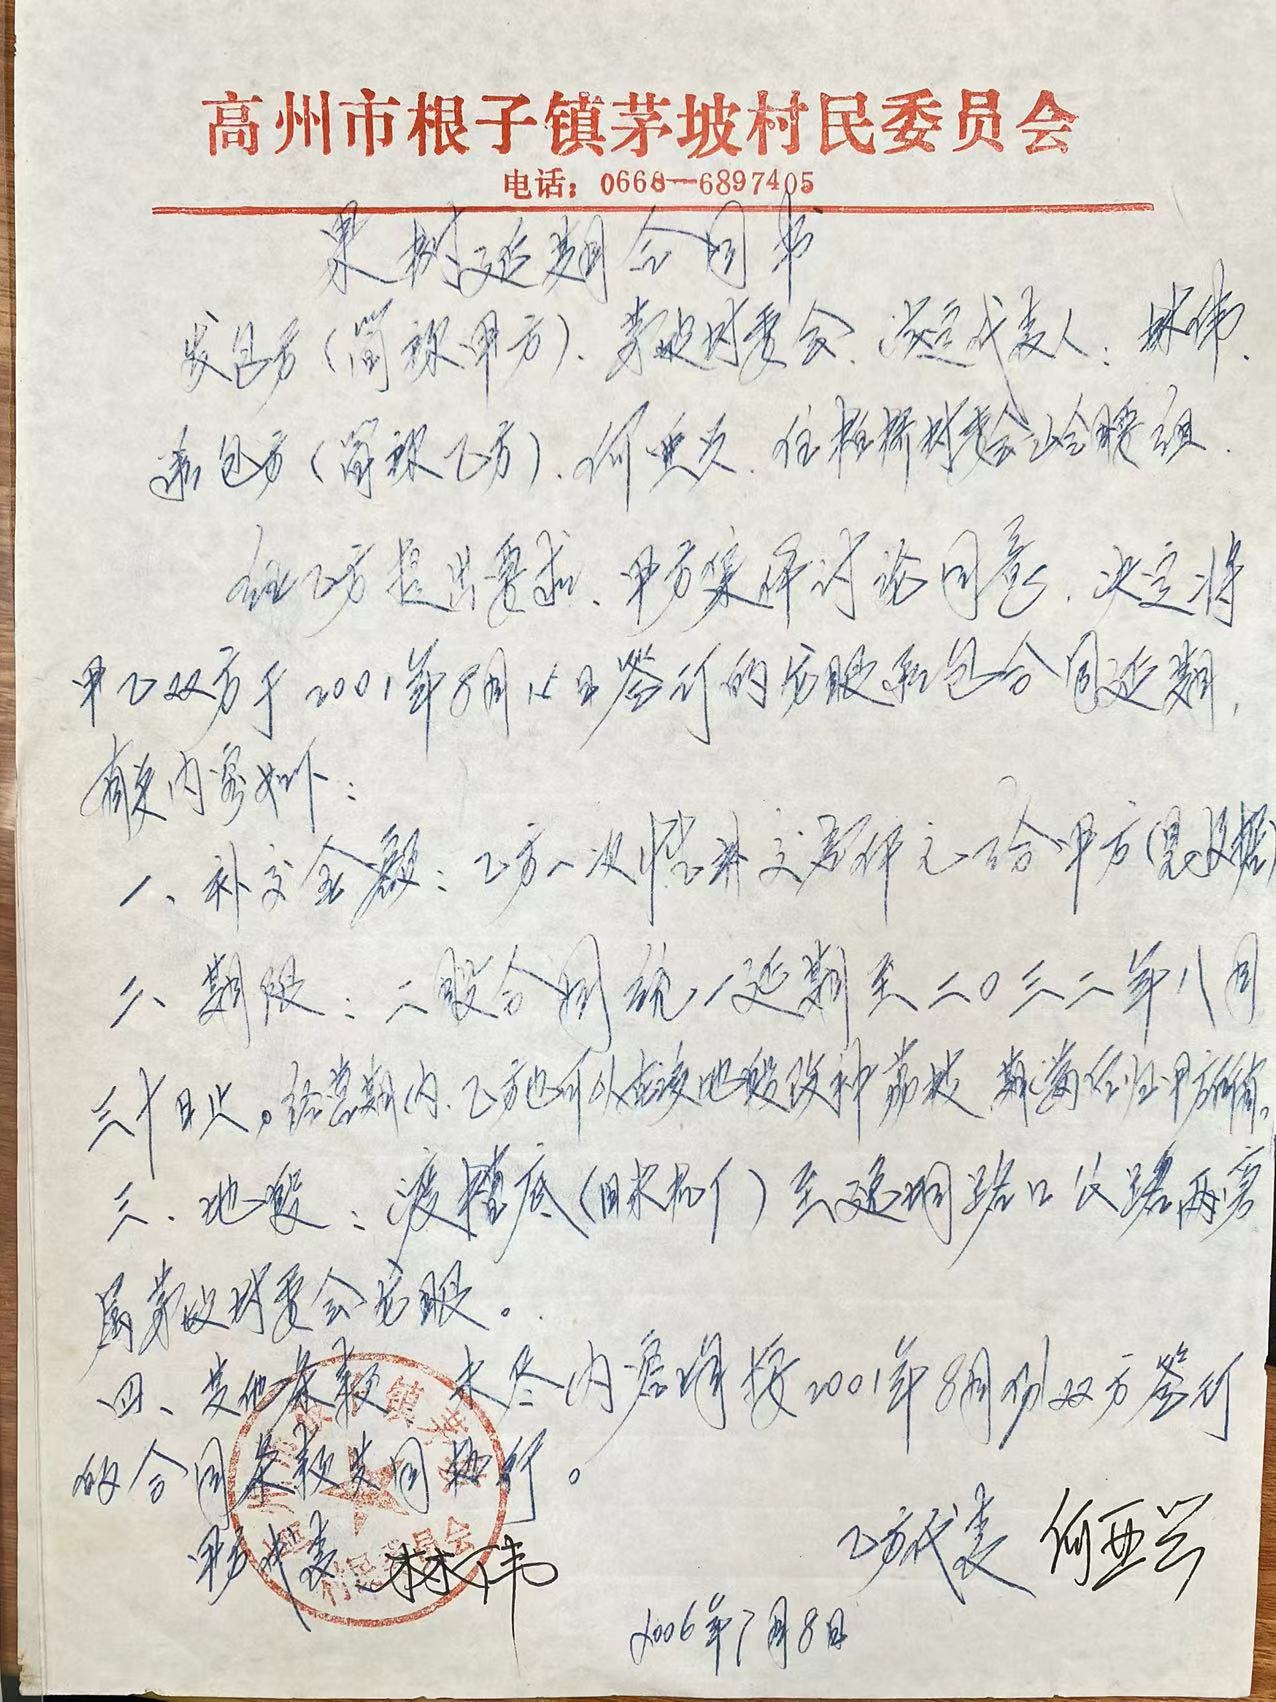 高州市根子镇茅坡村民委员会
电话：0668—6897405
果树延期合同书
发包方（简称甲方）、茅坡村委会、法定代表人：林伟、
承包方（简称乙方）、何亚兴、住柏桥村委会山腰组、
经乙方提出要求、甲方集体讨论同意、决定将
甲乙双方于2001年8月15日签订的龙眼承包合同延期，
有关内容如下：
一、补交金额：乙方一次性补交 仟元给甲方（见收据）
二、期限：二段合同统一延期至二〇三二年八月
三十日止。经营期内、乙方也可以在该地段改种荔枝 期满后归甲方所有。
三、地段：渡槽底（ ）至 垌路口公路两旁
属茅坡村委会龙眼。
四、其他条款 未尽内容详按2001年8月份双方签订
的合同条款共同执行。
甲方代表 林伟
乙方代表 何亚兴
2006年7月8日
根子镇茅坡
村民委员会